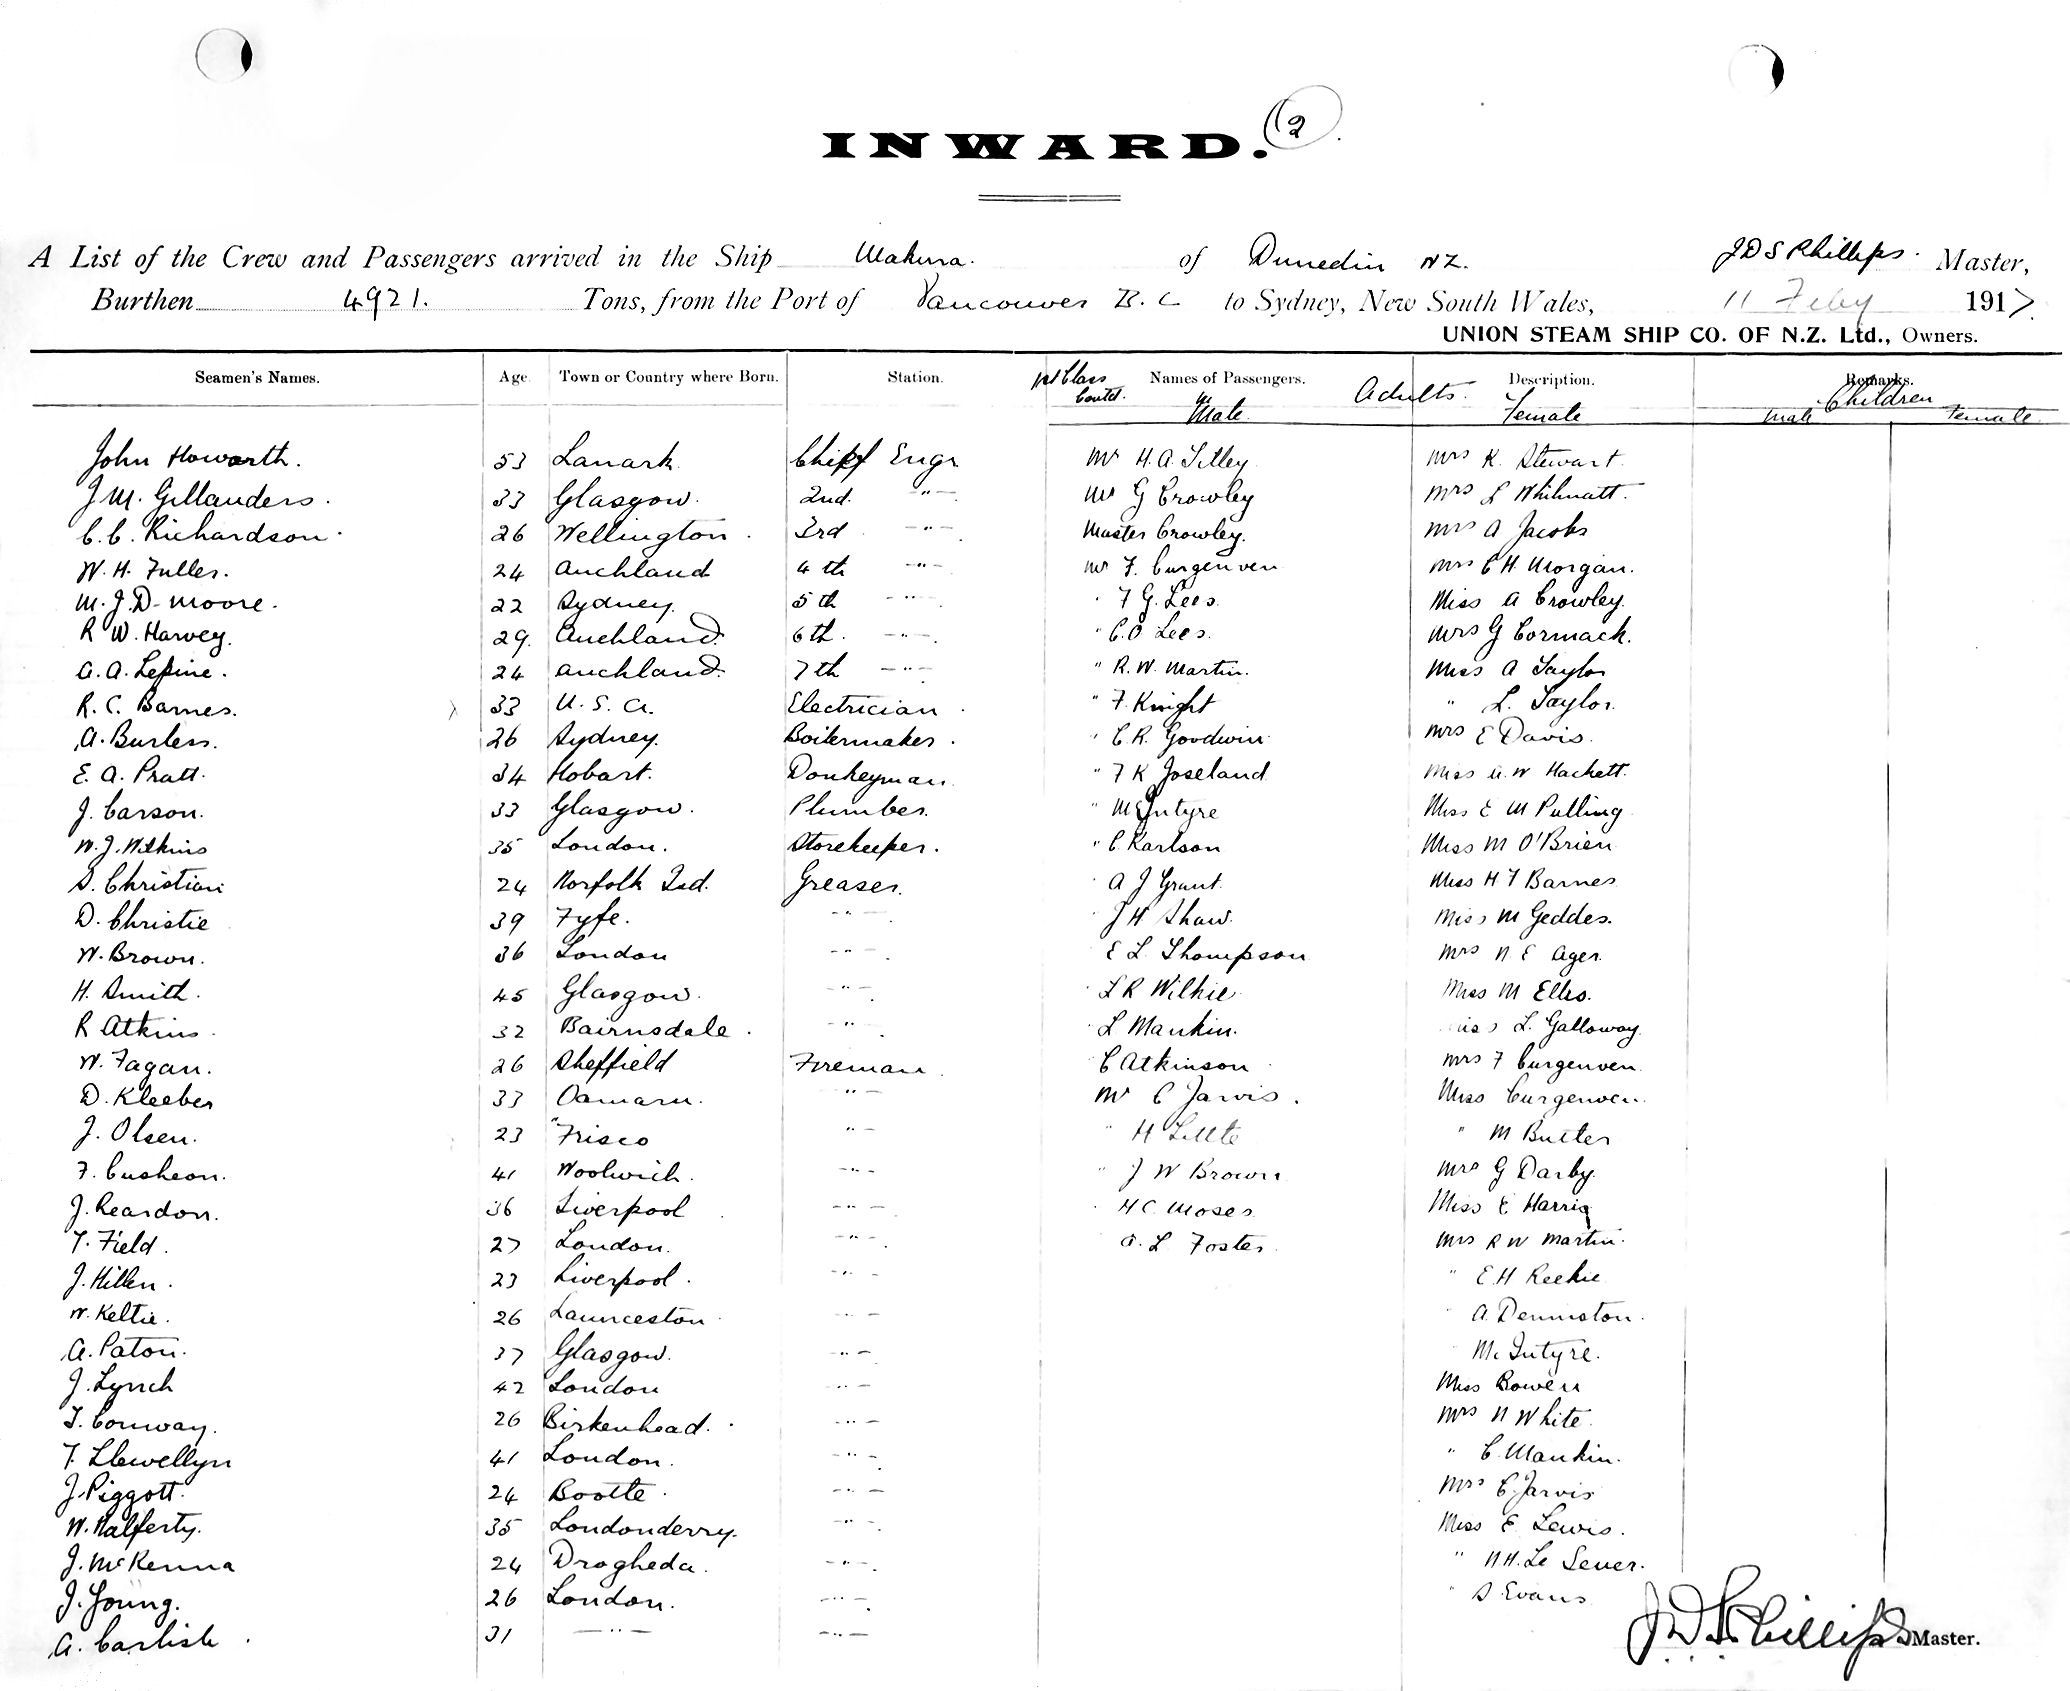 (2
INWARD.
A List of the Crew and Passengers arrived in the Ship Makura. of Dunedin NZ. JDS Phillips. Master,
Burthen 4921. Tons, from the Port of Vancouver B.C to Sydney, New South Wales, 11 Feby 1917.
UNION STEAM SHIP CO. OF N.Z. Ltd., Owners.
Seamen's Names. Age. Town or Country where Born. Station. 1st Class Contd. Names of Passengers. Adults. Description. Remarks. Children
Male Female Male Female
John Howarth. 53 Lanark. Chief Engr Mr H.A. Tilley Mrs K. Stewart.
J M. Gillanders. 33 Glasgow. 2nd. -"- Mr G Crowley Mrs L
C.C. Richardson. 26 Wellington. 3rd -"- Master Crowley. Mrs A Jacobs
W.H. Fuller. 24 Auckland 4th -"- Mr F. Curgenven Mrs C H Morgan.
M.J.D. Moore. 22 Sydney. 5th -"- " F G. Lees. Miss A Crowley.
R W. Harvey. 29. Auckland. 6th. -"- " C.O Lees. Mrs G Cormack.
A.A. Lepine. 24 Auckland. 7th -"- " R.W. Martin. Miss A Taylor
R.C. Barnes. 33 U.S.A. Electrician " F. Knight " L. Taylor.
A. Burless. 26 Sydney. Boilermaker. " C.R. Goodwin Mrs E Davis.
E.A. Pratt. 34 Hobart. Donkeyman. " F K Joseland Miss A.W Hackett.
J. Carson. 33 Glasgow. Plumber. " McIntyre Miss E M Pulling
W.J. Wilkins 35 London. Storekeeper. " C. Karlson Miss M O'Brien
S. Christian 24 Norfolk Isd. Greaser. A J Grant. Miss H F Barnes
D. Christie 39 Fyfe. -"- J H Shaw. Miss M Geddes.
W. Brown. 36 London -"- E L Thompson Mrs N E Ager.
H. Smith. 45 Glasgow. -"- L R Wilkie Miss M Ellis.
R Atkins. 32 Bairnsdale. -"- L Mankin. Miss L. Galloway.
W. Fagan. 26 Sheffield Fireman C Atkinson Mrs F Curgenven
D. Kleeber 33 Oamaru. -"- Mr C Jarvis. Miss Curgenven.
J. Olsen. 23 Frisco -"- " H Little " M Butler
F. Cusheon. 41 Woolwich. -"- " J W Brown Mrs G Darby.
J. Reardon. 36 Liverpool -"- H C Moses. Miss E Harris
T. Field. 27 London. -"- A. L Foster. Mrs R W Martin.
J. Hillen. 23 Liverpool. -"- " E.H Reekie
W. Keltie. 26 Launceston -"- " A. Denniston.
A. Paton. 37 Glasgow. -"- McIntyre.
J. Lynch 42 London -"- Miss Bowen
T. Conway. 26 Birkenhead. -"- Mrs N White.
T. Llewellyn 41 London. -"- " C. Mankin.
J. Piggott. 24 Bootle. -"- Mrs C. Jarvis
W. Halferty. 35 Londonderry. -"- Miss E Lewis.
J. McKenna 24 Drogheda. -"- " N.H. Le Seuer.
J. Young. 26 London. -"- " S Evans
A. Carlisle 31 -"- -"- JDS Phillips Master.